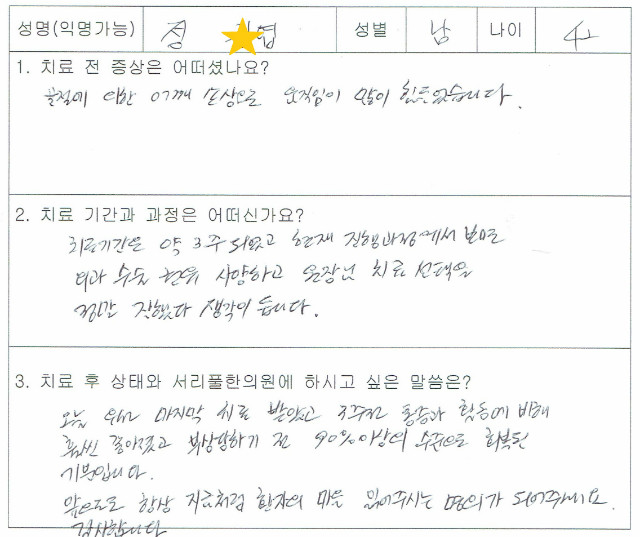 성명(익명가능) 정 협 성별 남 나이 42
1. 치료 전 증상은 어떠셨나요?
골절에 의한 어깨 손상으로 움직임이 많이 힘들었습니다.
2. 치료 기간과 과정은 어떠신가요?
치료기간은 약 3주 되었고 현재 진행과정에서 보면
외과 수술 권유 사양하고 원장님 치료 선택을
정말 잘했다 생각이 듭니다.
3. 치료 후 상태와 서리풀한의원에 하시고 싶은 말씀은?
오늘 마지막 치료 받았고 3주전 통증과 활동에 비해
훨씬 좋아졌고 부상당하기 전 90%이상의 수준으로 회복된
기분입니다.
앞으로도 항상 지금처럼 환자의 마음 읽어주시는 명의가 되어주세요.
감사합니다